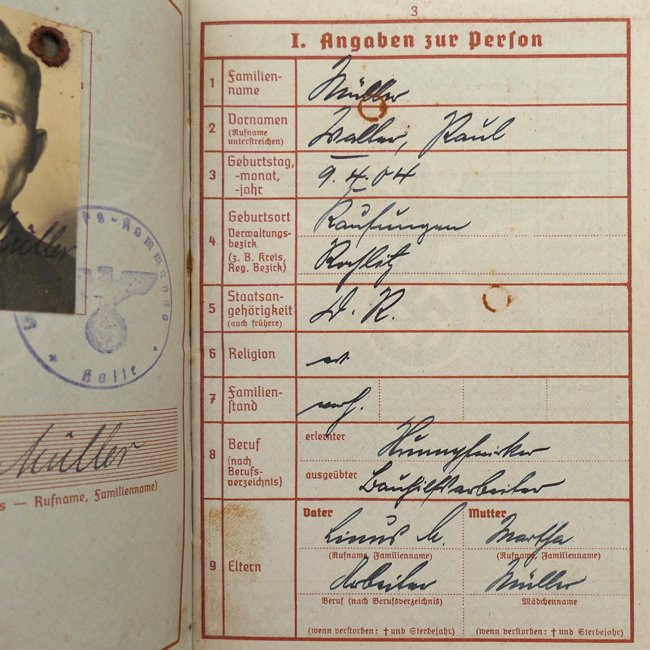 üller
s-Kommando
Halle
Müller
s — Rufname, Familienname)
3
I. Angaben zur Person
1 Familien-
name
Müller
2 Vornamen
(Rufname
unterstreichen)
Walter, Paul
3 Geburtstag,
-monat,
-jahr
9.4.04
4 Geburtsort
Verwaltungs-
bezirk
(z. B. Kreis,
Reg. Bezirk)
Kaufungen
Rochlitz
5 Staatsan-
gehörigkeit
(auch frühere)
D. R.
6 Religion
7 Familien-
stand
verh.
8 Beruf
(nach
Berufs-
verzeichnis)
erlernter
ausgeübter
Bauhilfsarbeiter
9 Eltern
Vater
Linus M.
(Rufname, Familienname)
Arbeiter
Beruf (nach Berufsverzeichnis)
(wenn verstorben: † und Sterbejahr)
Mutter
Martha
(Rufname, Familienname)
Müller
Mädchenname
(wenn verstorben: † und Sterbejahr)